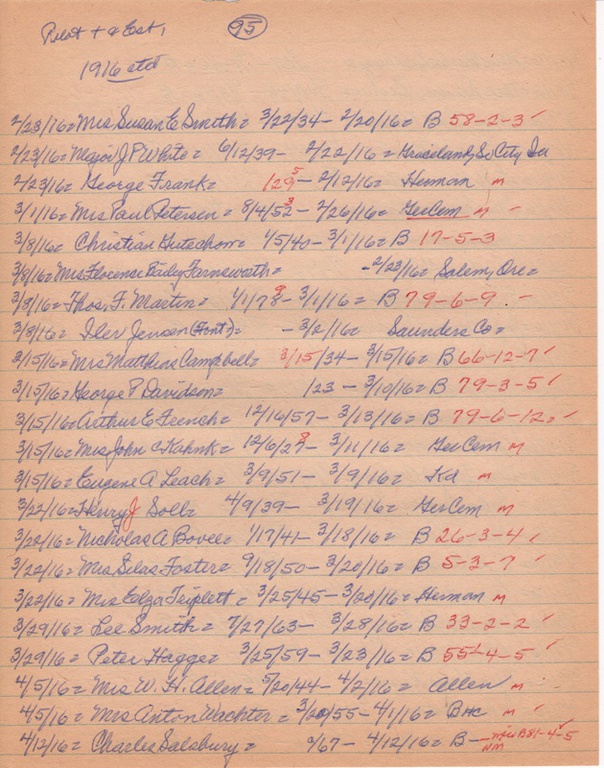 Pilot + & Cont, 95
1916 std
2/23/16= Mrs Susan E Smith= 3/22/34- 2/20/16= B 58-2-3 ✓
2/23/16= Major J P White= 6/12/39- 2/22/16= Graceland, So City Ia
2/23/16= George Frank= 129 5 - 2/12/16= Herman m
3/1/16= Mrs Paul Petersen= 8/4/52 3 - 2/26/16= GerCem m -
3/8/16= Christian Gutechow= 1/5/40- 3/1/16= B 17-5-3
3/8/16= Mrs Florence Farnsworth= -2/23/16= Salem, Ore=
3/8/16= Thos. F. Martin= 1/1/78 9 - 3/1/16= B 79-6-9 . -
3/8/16= Iler Jensen (Font)= - 3/2/16= Saunders Co=
3/15/16= Mrs Matthias Campbell= 3/15/34- 3/15/16= B 66-12-7 ✓
3/15/16= George P Davidson= /23 - 3/10/16= B 79-3-5 ✓
3/15/16= Arthur E French= 12/16/57- 3/13/16= B 79-6-12= ✓
3/15/16= Mrs John C Kahnk= 12/6/27 8 - 3/11/16= GerCem m
3/15/16= Eugene A Leach= 3/9/51- 3/9/16= Kd m
3/22/16= Henry J Soll= 4/9/39- 3/19/16= GerCem m
3/22/16= Nicholas A Bovee= 1/17/41- 3/18/16= B 26-3-4 ✓
3/22/16= Mrs Silas Foster= 9/18/50- 3/20/16= B 5-3-7 ✓
3/22/16= Mrs Elza Triplett= 3/25/45- 3/20/16= Herman m
3/29/16= Lee Smith= 7/27/63- 3/28/16= B 33-2-2 ✓
3/29/16= Peter Hagge= 3/25/59- 3/23/16= B 55-4-5 ✓
4/5/16= Mrs W. H. Allen= 5/20/44- 4/2/16= Allen m -
4/5/16= Mrs Anton Wachter= 3/20/55- 4/1/16= BHC m ✓
4/12/16= Charles Salsbury= /67- 4/12/16= B- NM B81-4-5